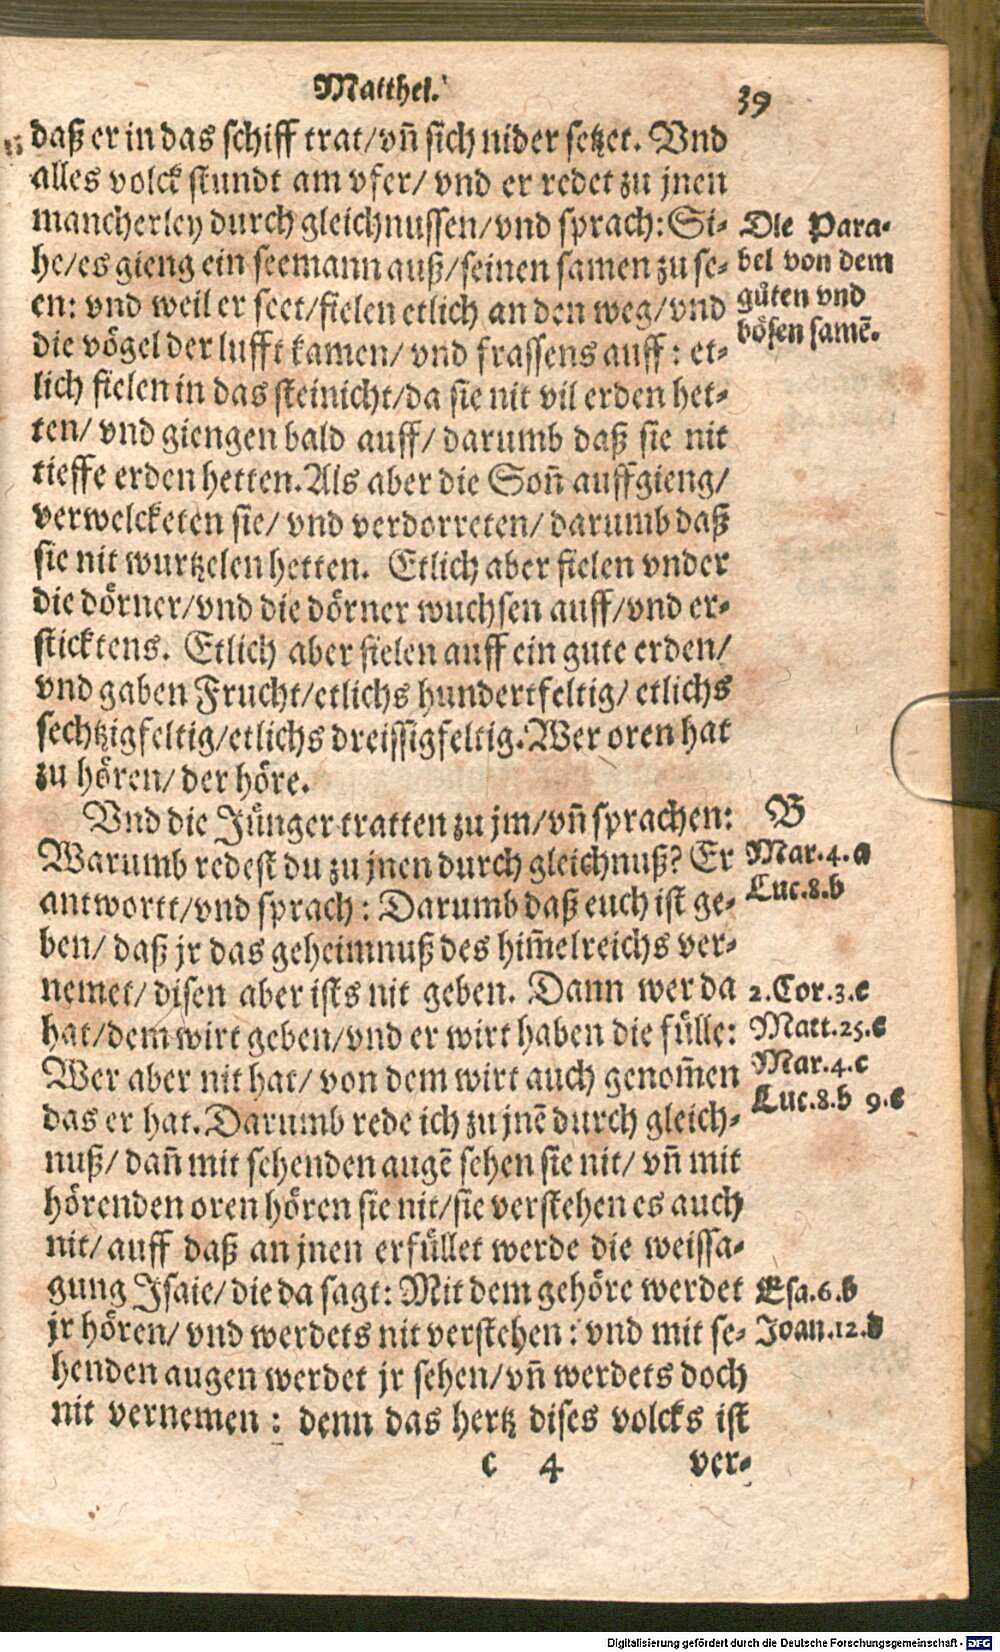 Matthei.
39
daß er in das schiff trat/vn̄ sich nider setzet. Vnd
alles volck stundt am vfer/ vnd er redet zu jnen
mancherley durch gleichnussen/vnd sprach: Si-
he/es gieng ein seemann auß/seinen samen zu se-
en: vnd weil er seet/fielen etlich an den weg/vnd
die vögel der lufft kamen/ vnd frassens auff: et-
lich fielen in das steinicht/da sie nit vil erden het-
ten/ vnd giengen bald auff/ darumb daß sie nit
tieffe erden hetten. Als aber die Son̄ auffgieng/
verwelcketen sie/ vnd verdorreten/ darumb daß
sie nit wurtzelen hetten. Etlich aber fielen vnder
die dörner/vnd die dörner wuchsen auff/vnd er-
sticktens. Etlich aber fielen auff ein gute erden/
vnd gaben Frucht/etlichs hundertfeltig/ etlichs
sechtzigfeltig/etlichs dreissigfeltig. Wer oren hat
zu hören/ der höre.
Vnd die Jünger tratten zu jm/vn̄ sprachen:
Warumb redest du zu jnen durch gleichnuß? Er
antwortt/vnd sprach: Darumb daß euch ist ge-
ben/ daß jr das geheimnuß des him̄elreichs ver-
nemet/ disen aber ists nit geben. Dann wer da
hat/dem wirt geben/vnd er wirt haben die fülle:
Wer aber nit hat/ von dem wirt auch genom̄en
das er hat. Darumb rede ich zu jnē durch gleich-
nuß/ dan̄ mit sehenden augē sehen sie nit/ vn̄ mit
hörenden oren hören sie nit/sie verstehen es auch
nit/ auff daß an jnen erfüllet werde die weissa-
gung Isaie/die da sagt: Mit dem gehöre werdet
jr hören/ vnd werdets nit verstehen: vnd mit se-
henden augen werdet jr sehen/vn̄ werdets doch
nit vernemen: denn das hertz dises volcks ist
c 4 ver-
Die Para-
bel von dem
gůten vnd
bösen samē.
B
Mar.4.a
Luc.8.b
2.Cor.3.c
Matt.25.c
Mar.4.c
Luc.8.b 9.c
Esa.6.b
Joan.12.d
Digitalisierung gefördert durch die Deutsche Forschungsgemeinschaft - DFG